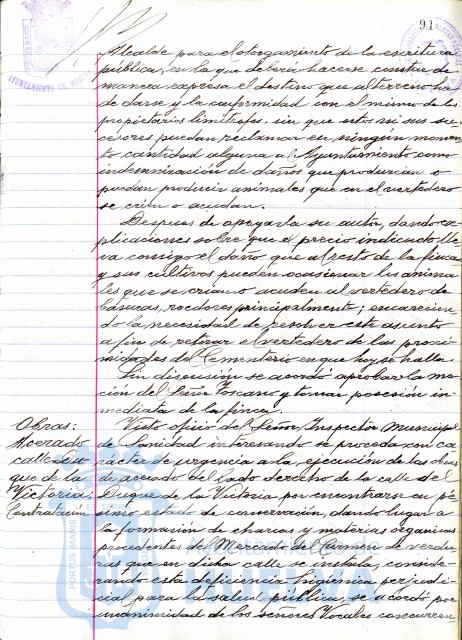 91
AYUNTAMIENTO DE
Alcalde para el otorgamiento de la escritura
pública, en la que deberá hacerse constar de
manera expresa el destino que al terreno ha
de darse y la conformidad con el mismo de los
propietarios limítrofes, sin que estos ni sus su-
cesores puedan reclamar en ningún momen-
to cantidad alguna al Ayuntamiento como
indemnización de daños que produzcan o
puedan producir animales que en el vertedero
se crien o acudan.
Despues de apoyarla su autor, dando ex-
plicaciones sobre que el precio indicado lle-
va consigo el daño que al resto de la finca
y sus cultivos pueden ocasionar los anima-
les que se crian o acuden al vertedero de
basuras, roedores principalmente; encarecien-
do la necesidad de resolver este asunto
a fin de retirar el vertedero de las proxi-
midades del Cementerio en que hoy se halla.
Sin discusión se acordó aprobar la mo-
ción del Señor Toscano y tomar posesión in-
mediata de la finca.
Obras:
Acerado
calle Du-
que de la
Victoria:
Contratación
Visto oficio del Señor Inspector Municipal
de Sanidad interesando se proceda con ca-
rácter de urgencia a la ejecución de las obras
de acerado del lado derecho de la calle del
Duque de la Victoria por encontrarse en pé-
simo estado de conservación, dando lugar a
la formación de charcas y materias organicas
procedentes del Mercado del Carmen de verdu-
ras que en dicha calle se instala, conside-
rando esta deficiencia higienica perjudi-
cial para la salud pública, se acordó por
unanimidad de los señores Vocales concurren-
PORTUS MARIS
Ayuntamiento de
Huelva